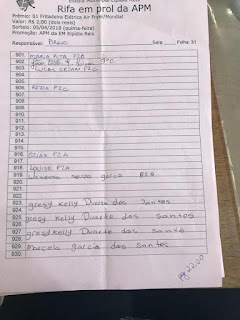 Escola Municipal Elpidio Reis
Rifa em prol da APM
Prêmio: 01 Fritadeira Elétrica Air Fryer/Mondial
Valor: R$ 2,00 (dois reais)
Sorteio: 05/04/2018 (quinta-feira)
Promoção: APM da EM Elpidio Reis
Responsável: Sala Folha: 31
901. MARIA RITA P2C
902.
903. LUCAS P2C
904.
905.
906. P2C
907.
908.
909.
910.
911.
912.
913.
914.
915.
916. P2A
917.
918. LOUISE P2A
919. souza
920.
921.
922.
923. gresy Kelly Duarte dos Santos
924.
925. gresy Kelly Duarte dos santos
926.
927. gresy Kelly Duarte dos santos
928.
929. Marcela garcia dos Santos
930.
R$ 22,00